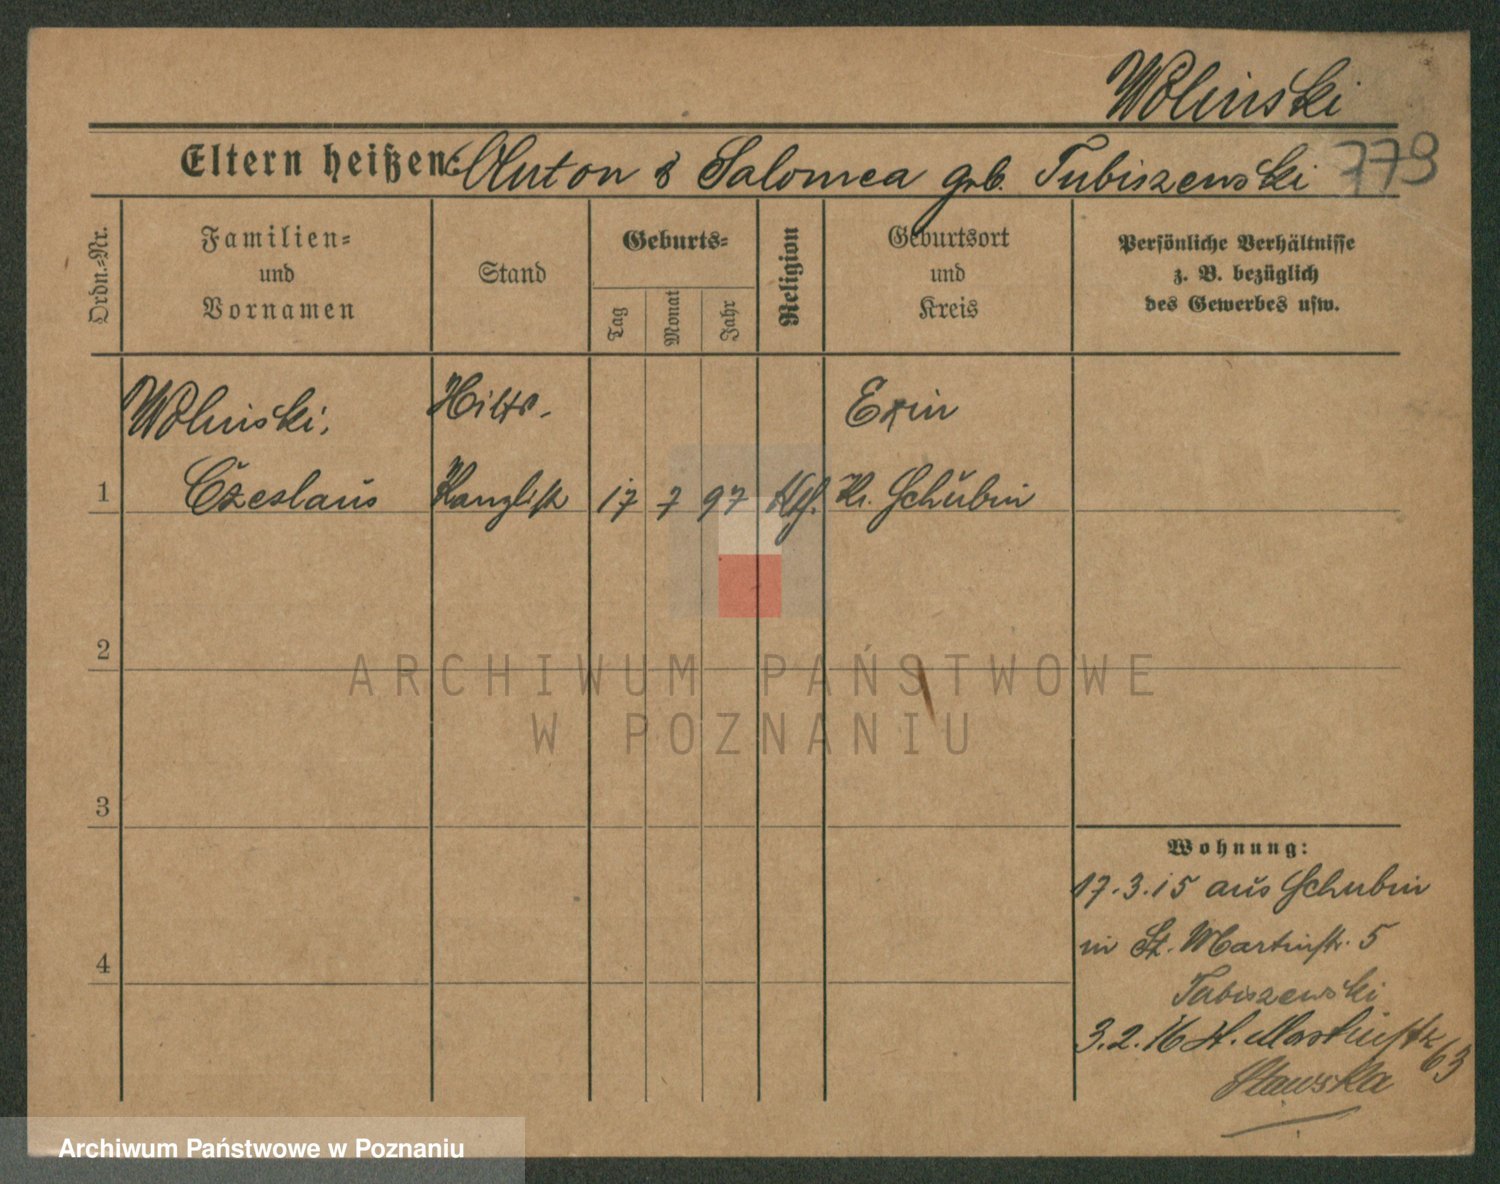 Wolinski
Eltern heißen: Anton & Salomea geb. Tubiszewski 779
Ordn.=Nr.
Familien=
und
Vornamen
Stand
Geburts=
Tag
Monat
Jahr
Religion
Geburtsort
und
Kreis
Persönliche Verhältnisse
z. B. bezüglich
des Gewerbes usw.
Wolinski, Hilfs- Exin
1 Czeslaus Kanzlist 17 7 97 Kr. Schubin
2
3
4
Wohnung:
17.3.15 aus Schubin
in St. Martinstr. 5
Tubiszewski
3.2.16 St. Martinstr. 63
ARCHIWUM PAŃSTWOWE
W POZNANIU
Archiwum Państwowe w Poznaniu